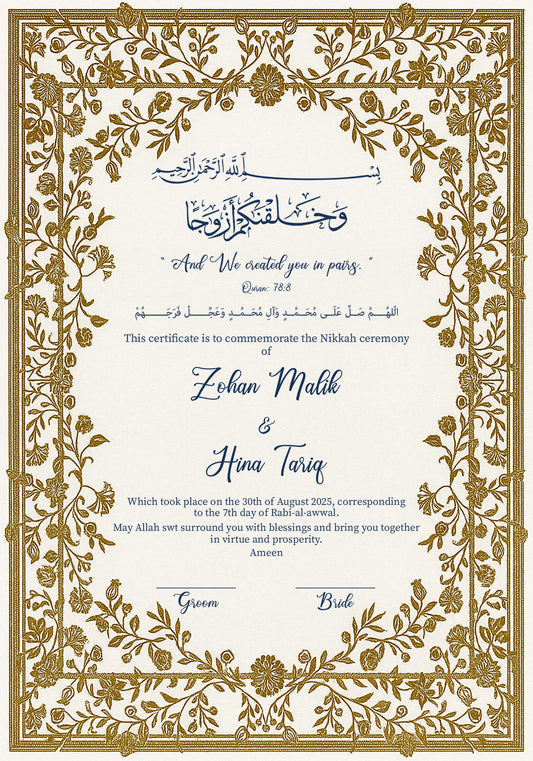 بِسْمِ ٱللَّهِ ٱلرَّحْمَٰنِ ٱلرَّحِيمِ
وَخَلَقْنَٰكُمْ أَزْوَٰجًا
" And We created you in pairs. "
Quran: 78:8
اللهُمَّ صَلِّ عَلَى مُحَمَّدٍ وَآلِ مُحَمَّدٍ وَعَجِّلْ فَرَجَهُمْ
This certificate is to commemorate the Nikkah ceremony
of
Zohan Malik
&
Hina Tariq
Which took place on the 30th of August 2025, corresponding
to the 7th day of Rabi-al-awwal.
May Allah swt surround you with blessings and bring you together
in virtue and prosperity.
Ameen
Groom Bride